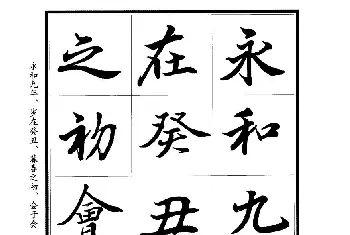 永和九
在癸丑
之初會
永和九年、岁在癸丑、暮春之初、会于会